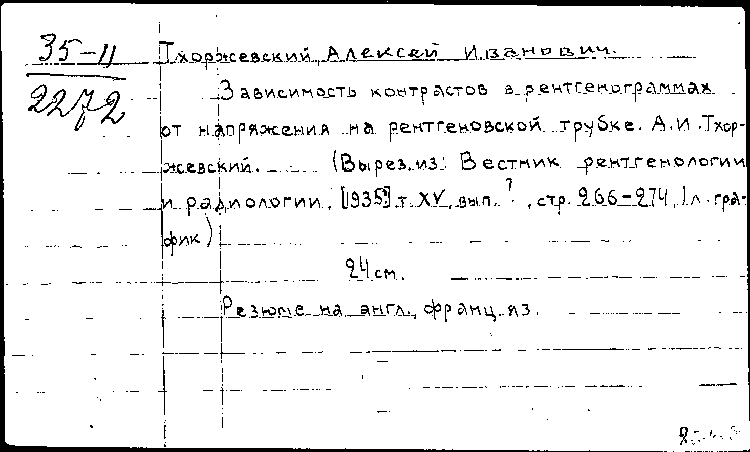 35-11
2272
Тхоржевский, Алексей Иванович.
Зависимость контрастов в рентгенограммах
от напряжения на рентгеновской трубке. А.И.Тхор-
жевский. (Вырез.из: Вестник рентгенологии
и радиологии, [1935] т. XV, вып. ?, стр. 266-274, 1 л. гра-
фик)
24 см.
Резюме на англ., франц. яз.